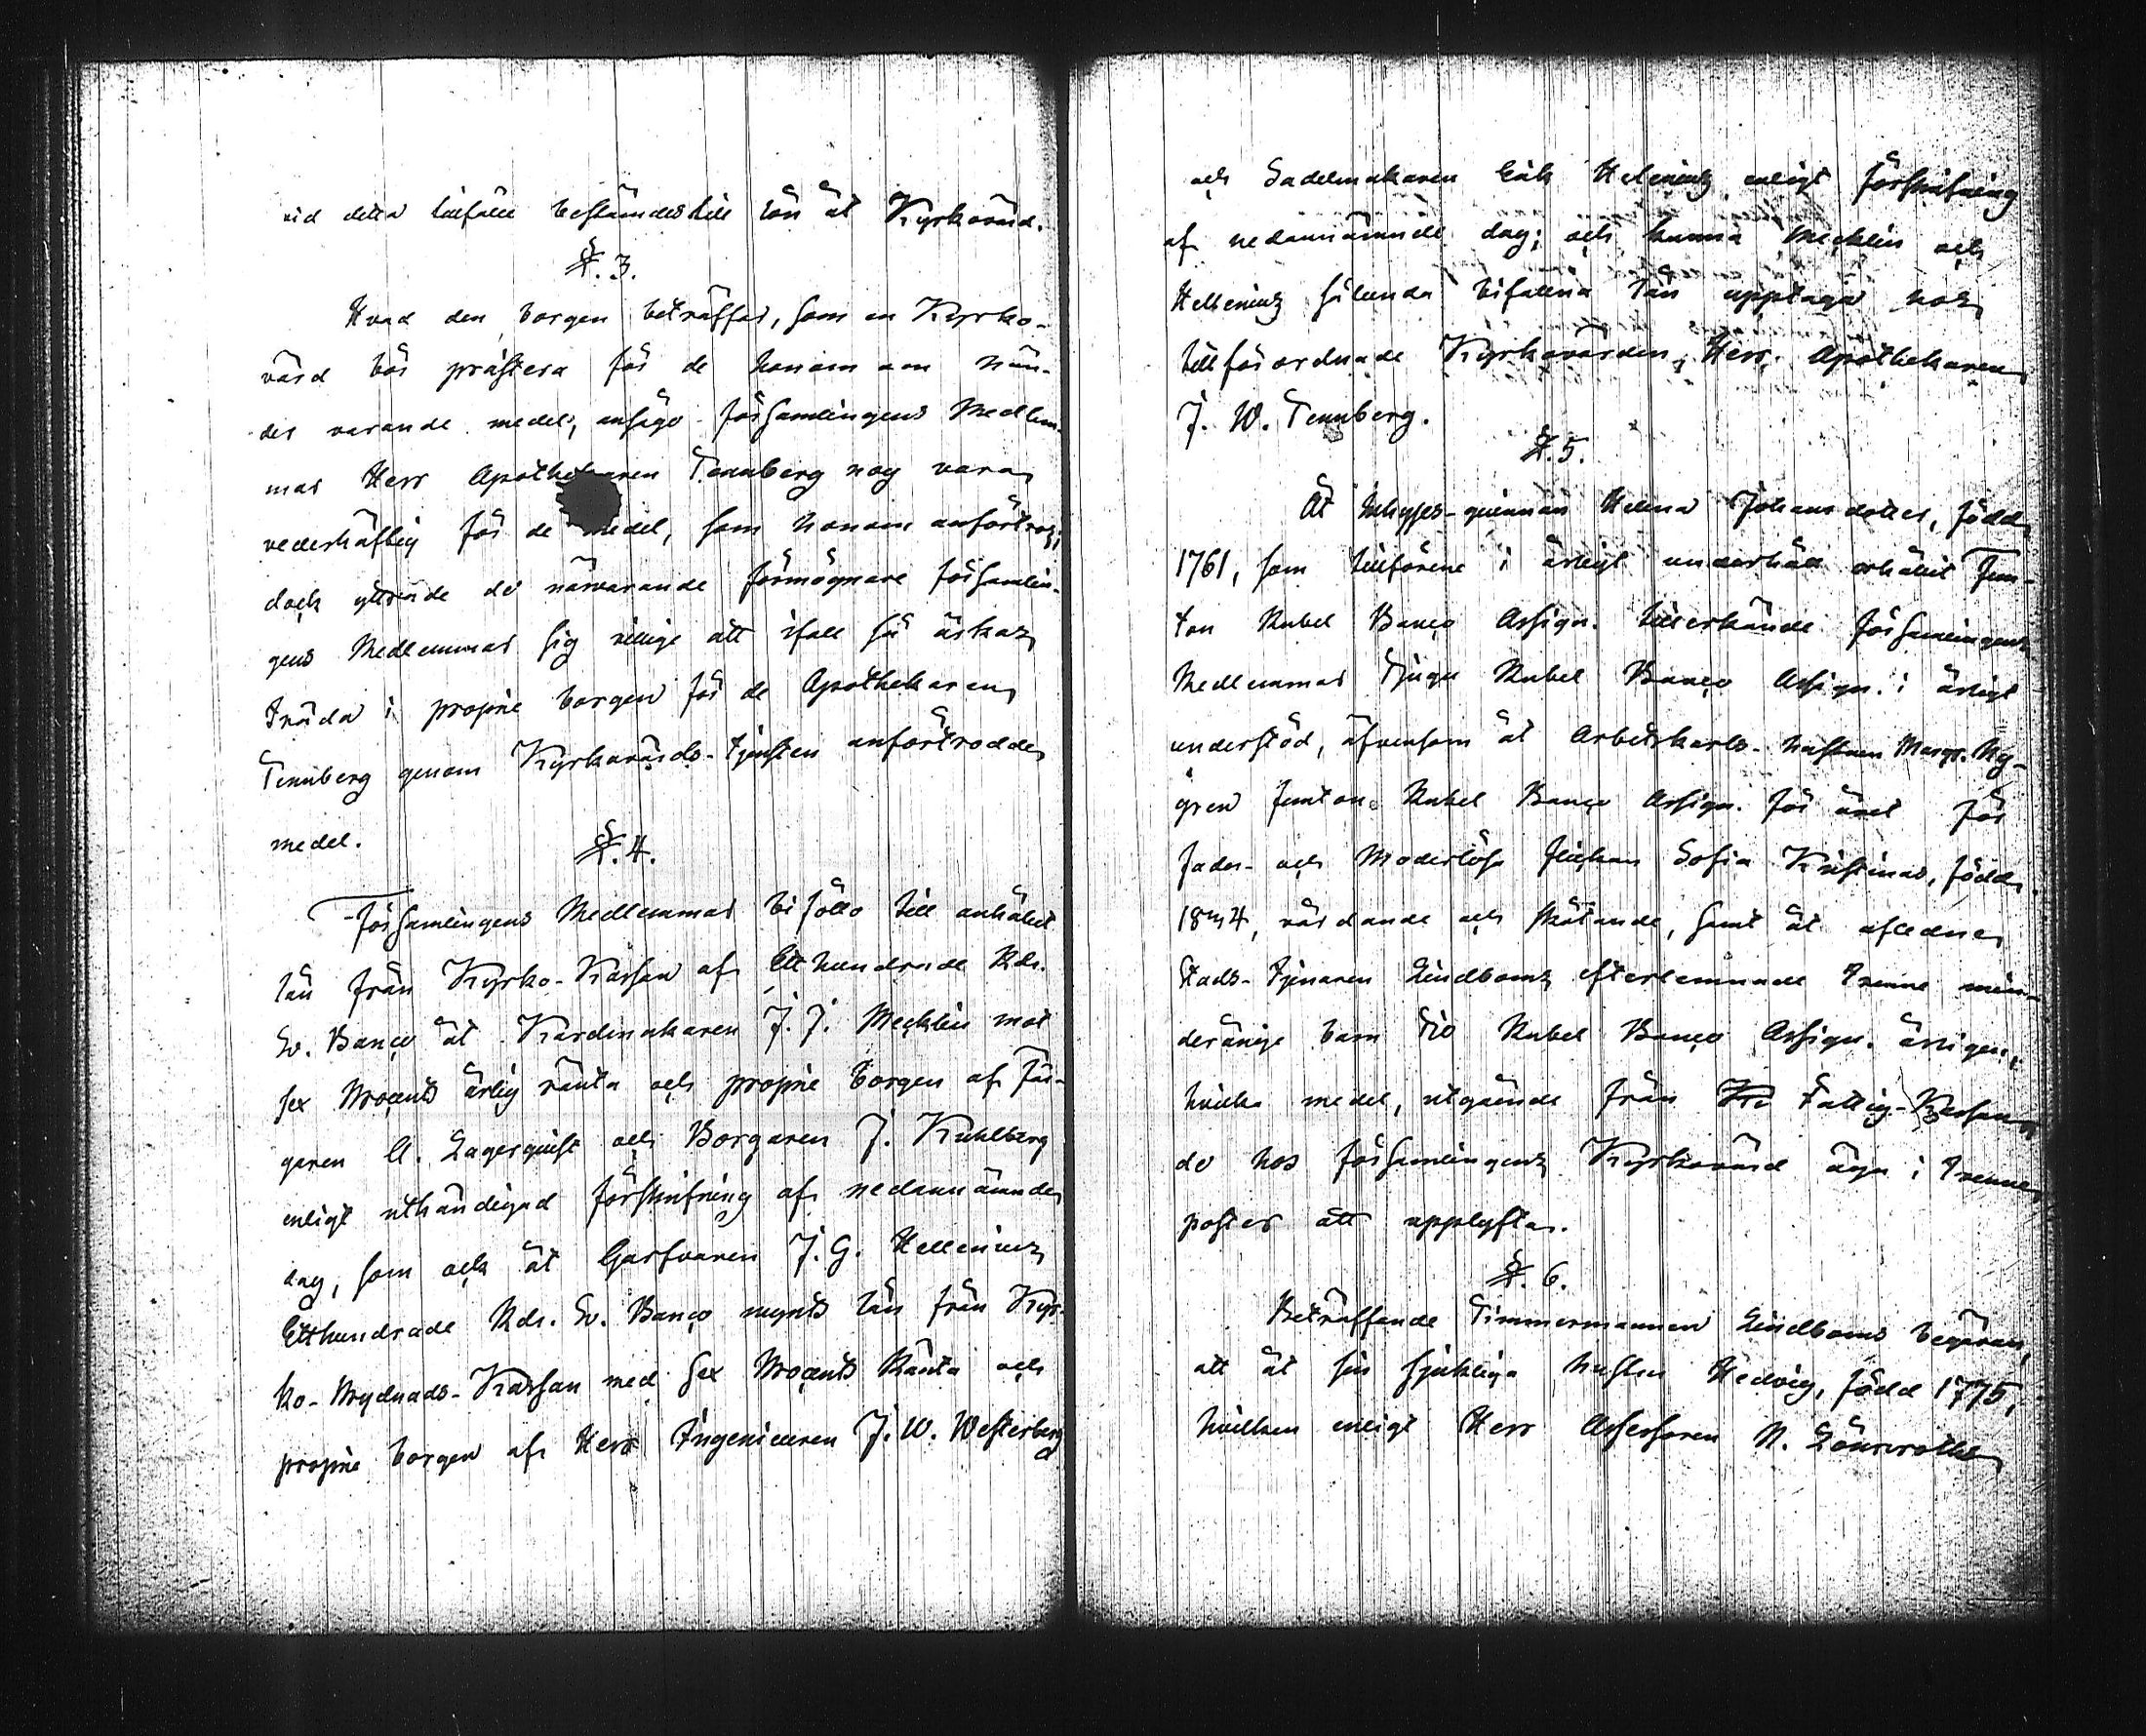 vid detta tillfälle bestämdes till lön åt Kyrkovärd.
§. 3.
Hvad den borgen beträffar, som en Kyrko-
värd bör prästera för de honom om hän-
der varande medel, ansågo församlingens Medlem-
mar Herr Apothekaren Tennberg nog vara
vederhäftig för de medel, som honom anförtros;
dock yttrade de närvarande förmögnare församlin-
gens Medlemmar sig villige att ifall så äskas
träda i proprie borgen för de Apothekaren
Tennberg genom Kyrkovärds-tjensten anförtrodde
medel.
§. 4.
Församlingens Medlemmar biföllo till anhållet
lån från Kyrko-Kassan af Ett hundrade Rdr.
Sv. Banco åt Kardmakaren J. J. Mecklin mot
sex Procents årlig ränta och proprie borgen af Fär-
garen A. Lagerquist och Borgaren J. Kuhlberg
enligt uthändigad förskrifning af nedannämnde
dag, som ock åt Garfvaren J. G. Hellenius
Etthundrade Rdr. Sv. Banco mynts lån från Kyr-
ko-Prydnads-Kassan med sex Procents Ränta och
proprie borgen af Herr Ingenieuren J. W. Westerberg
och Sadelmakaren Erik Helenius enligt förskrifning
af nedannämnde dag; och kunna Mecklin och
Hellenius sålunda bifallna lån upptaga hos
tillförordnade Kyrkovärden, Herr Apothekaren
J. W. Tennberg.
§. 5.
Åt Inhyses-quinnan Helena Johansdotter, född
1761, som tillförene i årligt underhåll erhållit Fem-
ton Rubel Banco Assign. tillerkände församlingens
Medlemmar Tjugu Rubel Banco Assign. i årligt
understöd, äfvensom åt Arbetskarls-hustrun Margr. Ny-
gren femton Rubel Banco Assign. för året för
fader- och moderlösa flickan Sofia Kristinas, född
1834, vårdande och skötande, samt åt afledne
Stads-tjenaren Lindboms efterlemnade trenne min-
deråriga barn Tio Rubel Banco Assign. årligen,
hvilka medel, utgående från Fattig-Kassan
de hos församlingens Kyrkovärd äga i trenne
poster att upplyfta.
§. 6.
Beträffande Timmermannen Lindboms begäran,
att åt sin sjukliga hustru Hedvig, född 1775,
hvilken enligt Herr Assessoren N. Lönnroths